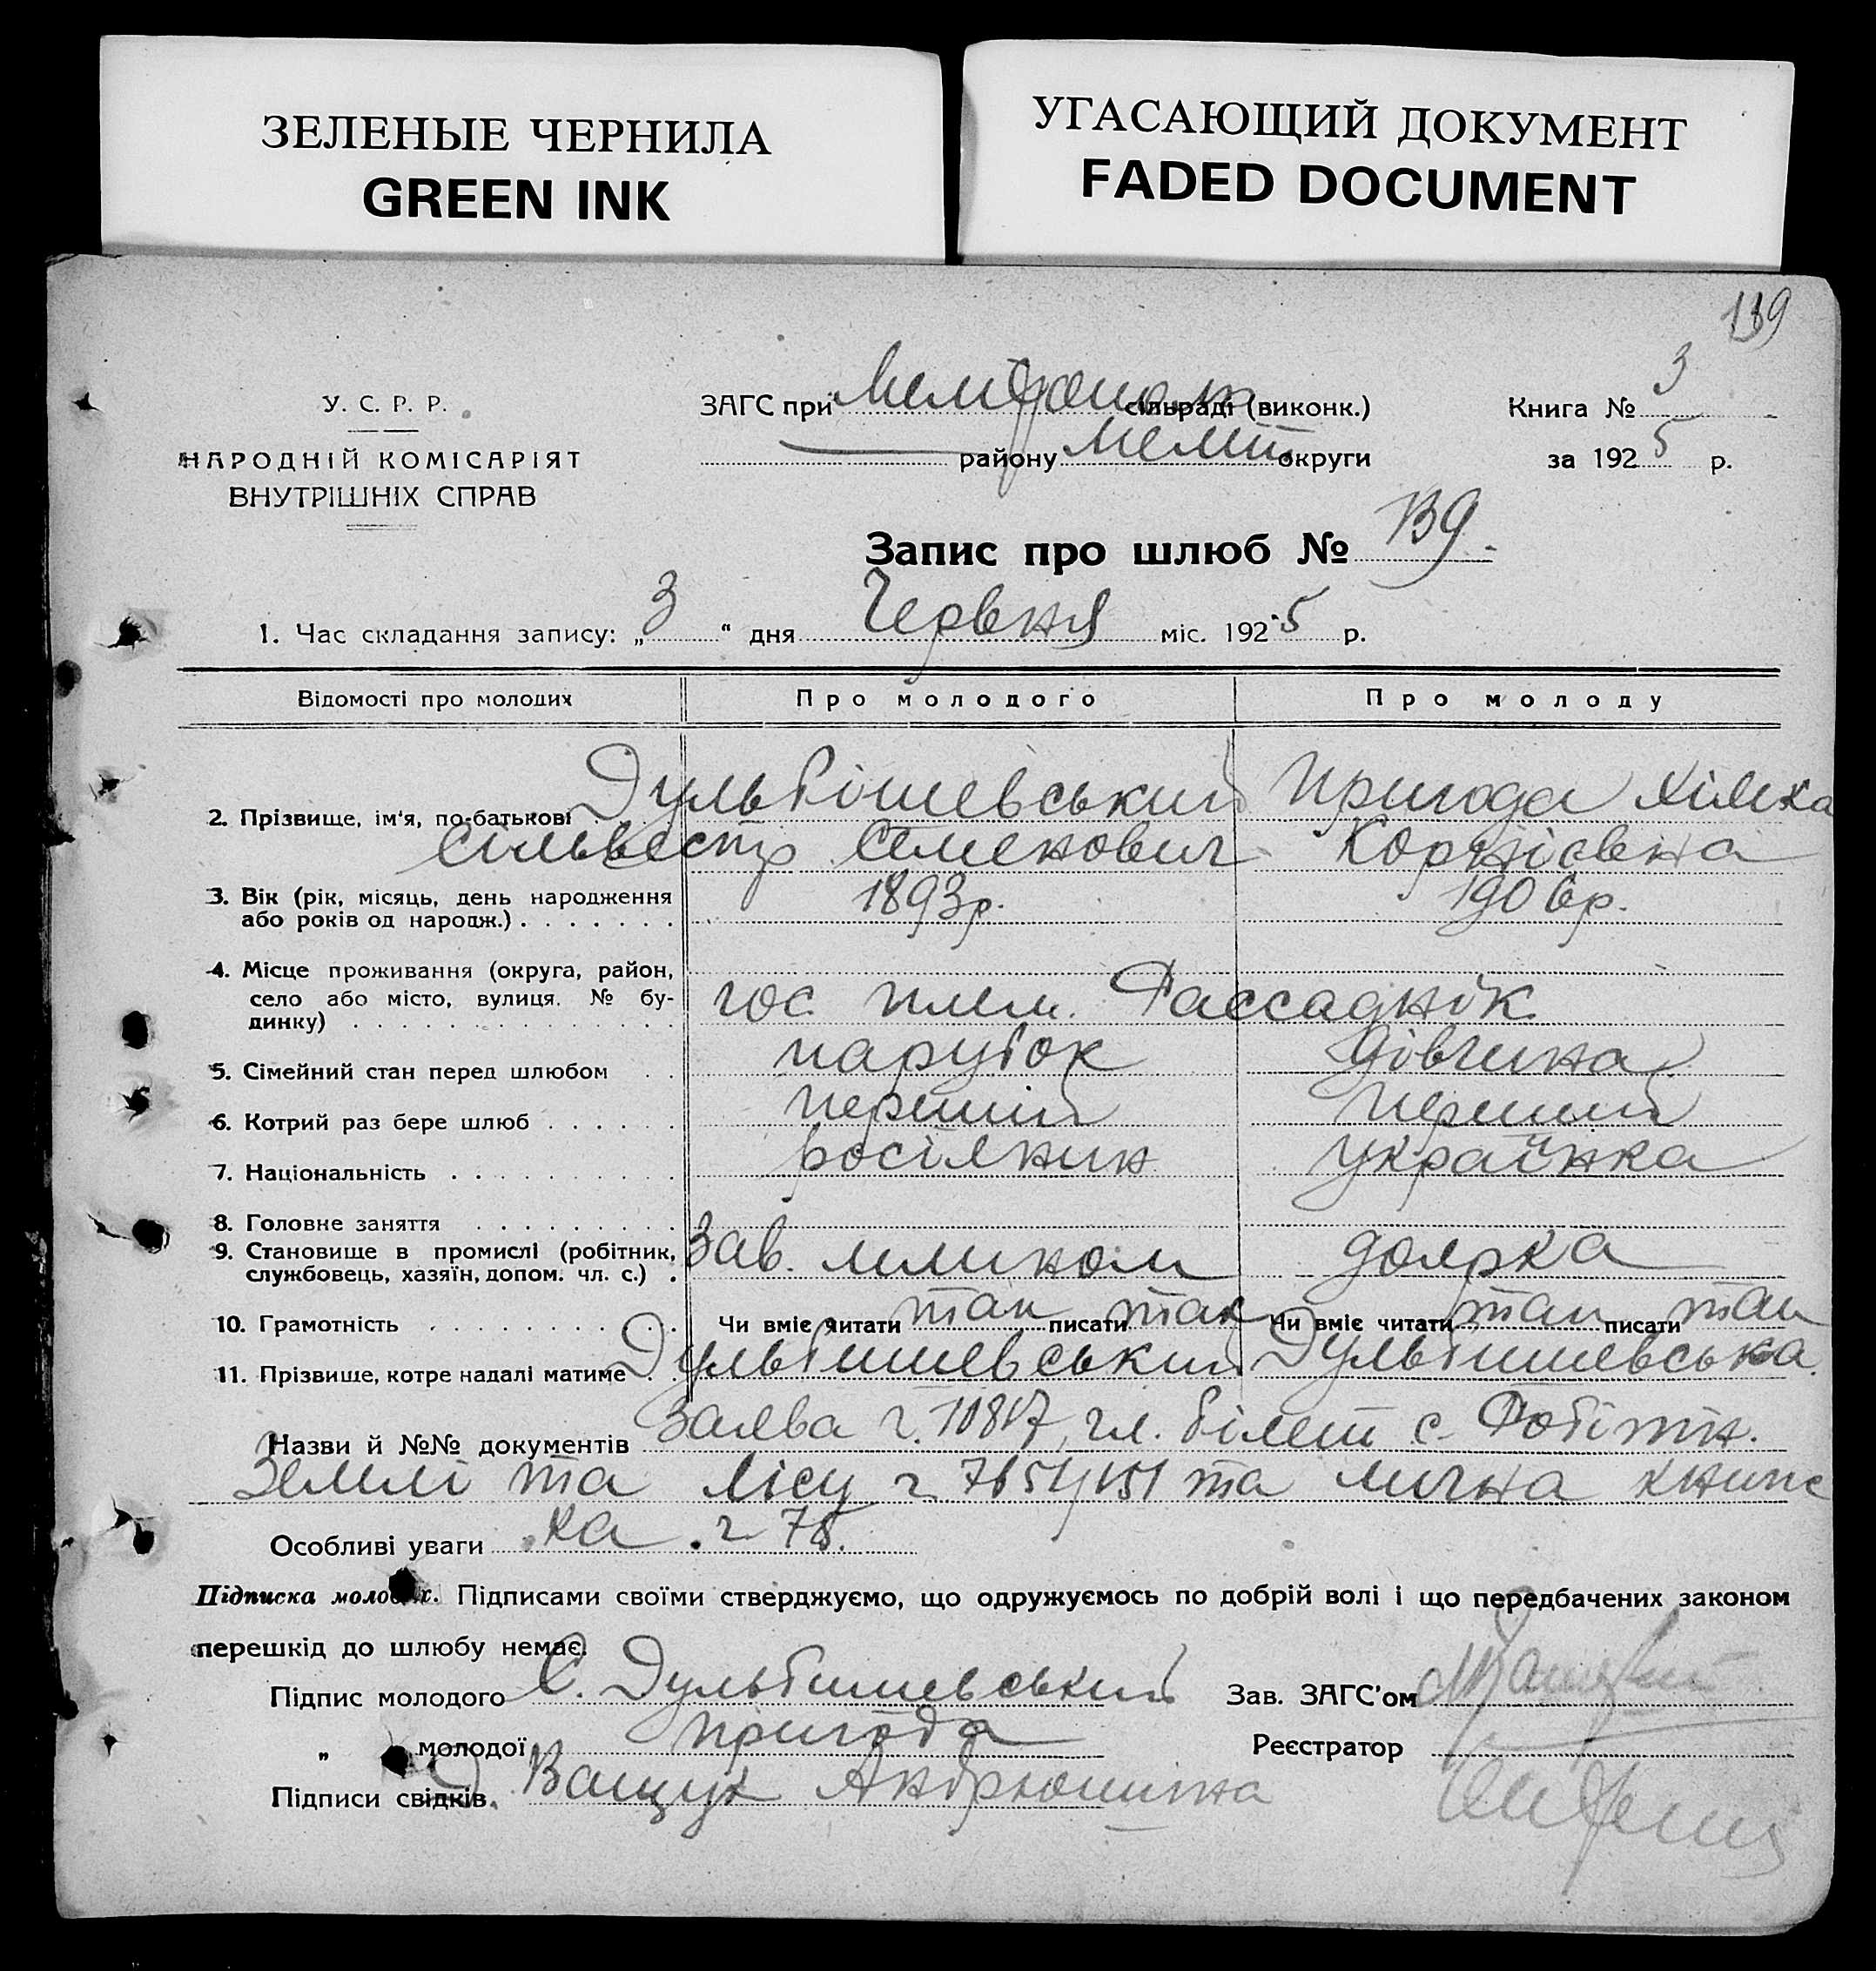 ЗЕЛЕНЫЕ ЧЕРНИЛА
GREEN INK
УГАСАЮЩИЙ ДОКУМЕНТ
FADED DOCUMENT
139
У. С. Р. Р.
НАРОДНІЙ КОМІСАРІЯТ
ВНУТРІШНІХ СПРАВ
ЗАГС при сільраді (виконк.)
району Меліт. округи
Книга № 3
за 1925 р.
Запис про шлюб № 139.
1. Час складання запису: „3“ дня Червня міс. 1925 р.
Відомості про молодих Про молодого Про молоду
2. Прізвище, ім'я, по-батькові Дульбішевський Пригода Хімка
Сільвестр Семенович Корніївна
3. Вік (рік, місяць, день народження 1893р. 1906р.
або років од народж.)
4. Місце проживання (округа, район,
село або місто, вулиця. № бу- гос. плем. Рассаднік
динку)
5. Сімейний стан перед шлюбом парубок дівчина
6. Котрий раз бере шлюб перший перший
7. Національність українка
8. Головне заняття
9. Становище в промислі (робітник, Зав. доярка
службовець, хазяїн, допом. чл. с.)
10. Грамотність Чи вміє читати так писати так Чи вміє читати так писати так
11. Прізвище, котре надалі матиме Дульбишевський Дульбишевська.
Назви й №№ документів Заява ч. 10817, чл. білет с. Робітн.
Землі та лісу ч. та лична книж
Особливі уваги ка ч 78.
Підписка молодих. Підписами своїми стверджуємо, що одружуємось по добрій волі і що передбачених законом
перешкід до шлюбу немає.
Підпис молодого С. Дульбишевський Зав. ЗАГС'ом
„ молодої Пригода Реєстратор
Підписи свідків. Ващук Андрюшина